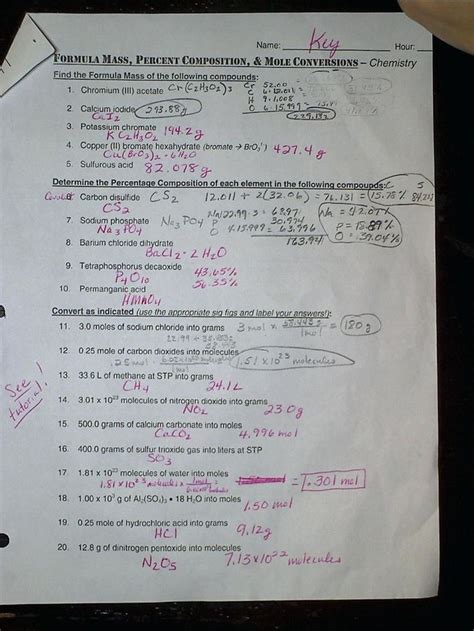 Name: Key Hour:
FORMULA MASS, PERCENT COMPOSITION, & MOLE CONVERSIONS – Chemistry
Find the Formula Mass of the following compounds:
1. Chromium (III) acetate Cr(C2H3O2)3 Cr 52.00
C 6·12.011
H 9·1.008
O 6·15.999
229.13g
2. Calcium iodide 293.88g
CaI2
3. Potassium chromate 194.2g
K2CrO4
4. Copper (II) bromate hexahydrate (bromate → BrO3 1-) 427.4g
Cu(BrO3)2 · 6H2O
5. Sulfurous acid 82.078g
Determine the Percentage Composition of each element in the following compounds:
Carbon disulfide CS2 12.011 + 2(32.06) = 76.131 15.78%
CS2
7. Sodium phosphate Na3PO4
Na3PO4 163.94
8. Barium chloride dihydrate
BaCl2·2H2O
9. Tetraphosphorus decaoxide 43.65%
P4O10 56.35%
10. Permanganic acid
HMnO4
Convert as indicated (use the appropriate sig figs and label your answers!):
11. 3.0 moles of sodium chloride into grams 3 mol x 58.443g = 180g
1mol
12. 0.25 mole of carbon dioxides into molecules
1.51x10^23 molecules
See tutorial!
13. 33.6 L of methane at STP into grams
CH4 24.1L
14. 3.01 x 10^23 molecules of nitrogen dioxide into grams
NO2 23.0g
15. 500.0 grams of calcium carbonate into moles
CaCO3 4.996 mol
16. 400.0 grams of sulfur trioxide gas into liters at STP
SO3
17. 1.81 x 10^23 molecules of water into moles
1.81x10^23 molecules x 1mol = .301 mol
18. 1.00 x 10^3 g of Al2(SO4)3 • 18 H2O into moles
1.50 mol
19. 0.25 mole of hydrochloric acid into grams
HCl 9.12g
20. 12.8 g of dinitrogen pentoxide into molecules
N2O5 7.13x10^22 molecules